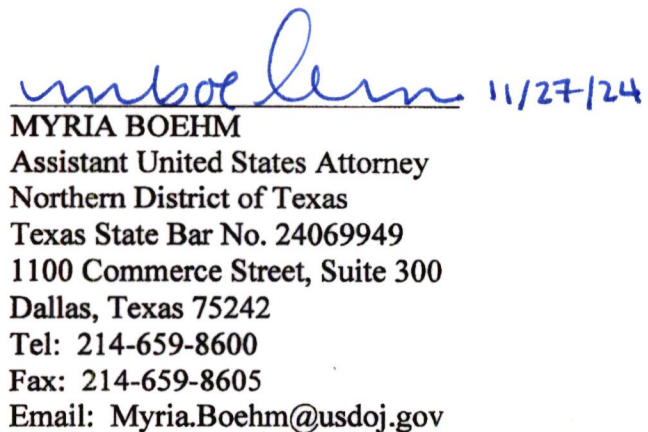 mboehm 11/27/24
MYRIA BOEHM
Assistant United States Attorney
Northern District of Texas
Texas State Bar No. 24069949
1100 Commerce Street, Suite 300
Dallas, Texas 75242
Tel: 214-659-8600
Fax: 214-659-8605
Email: Myria.Boehm@usdoj.gov